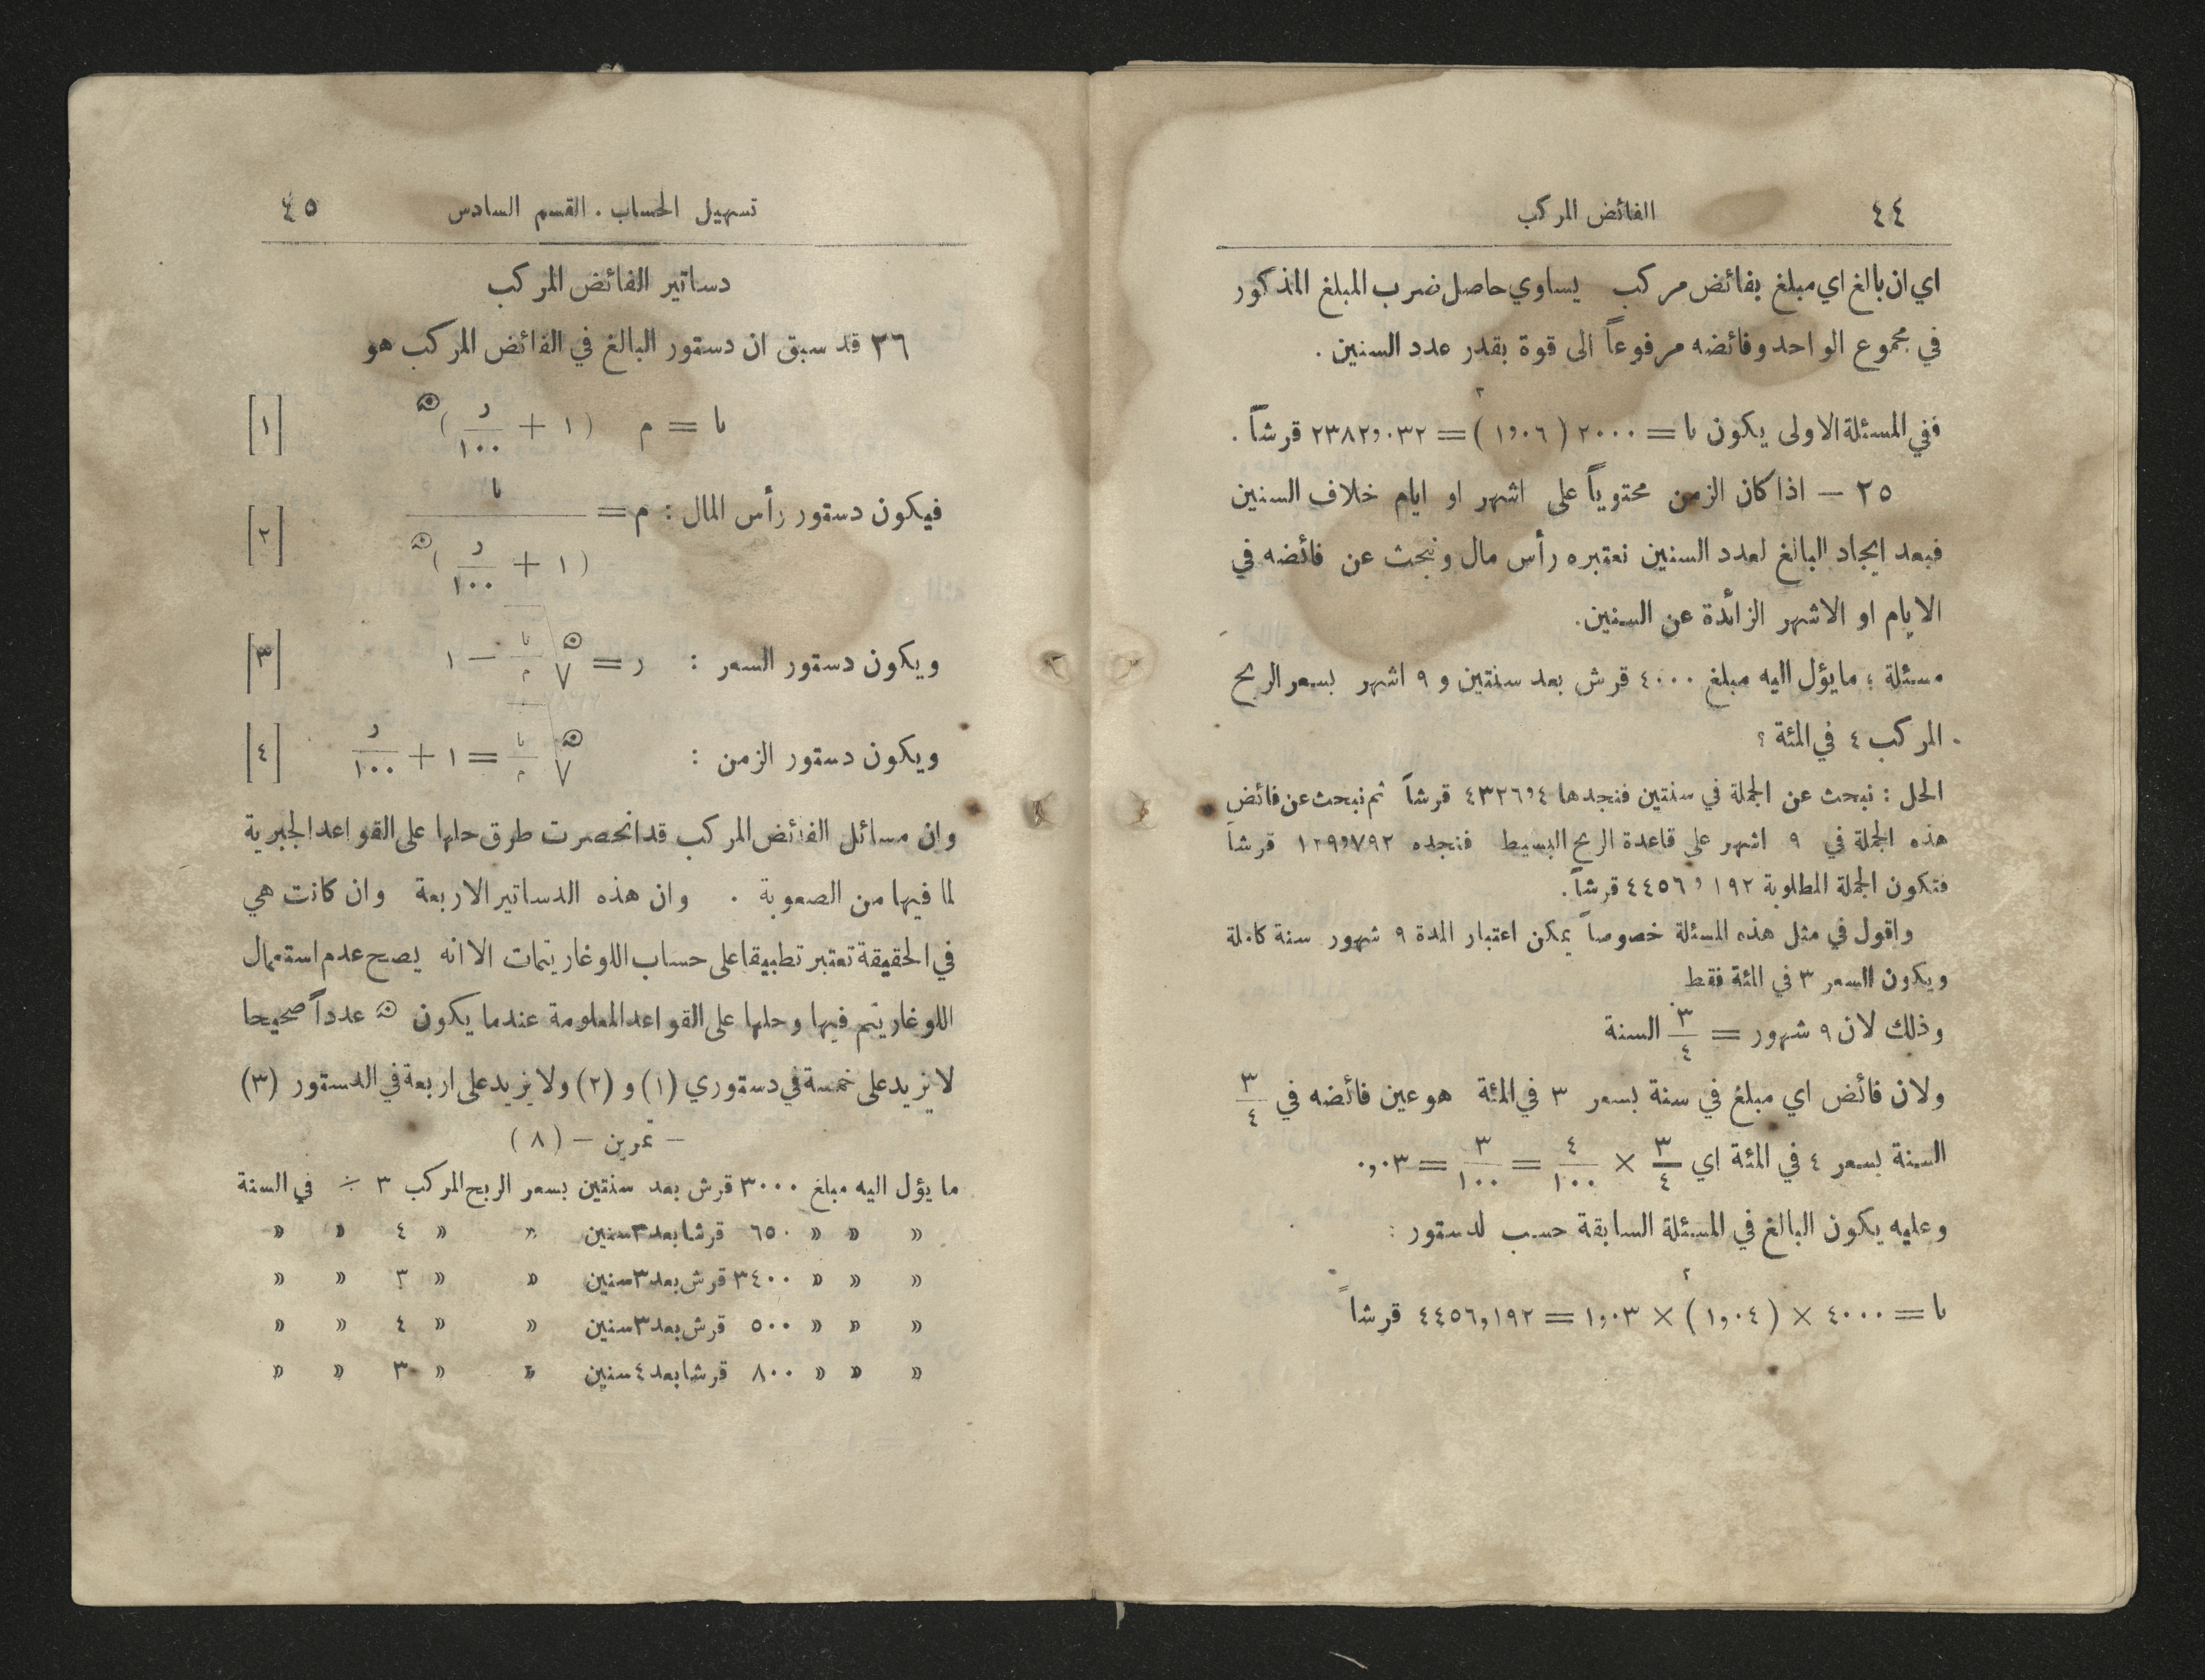 ٤٤
الفائض المركب
اي ان بالغ اي مبلغ بفائض مركب يساوي حاصل ضرب المبلغ المذكور
في مجموع الواحد وفائضه مرفوعاً الى قوة بقدر عدد السنين .
ففي المسئلة الاولى يكون ٮا = ٢٠٠٠ (١,٠٦)³ = ٢٣٨٢,٠٣٢ قرشاً .
٢٥ — اذا كان الزمن محتوياً على اشهر او ايام خلاف السنين
فبعد ايجاد البالغ لعدد السنين نعتبره رأس مال ونبحث عن فائضه في
الايام او الاشهر الزائدة عن السنين.
مسئلة ؛ ما يؤل اليه مبلغ ٤٠٠٠ قرش بعد سنتين و ٩ اشهر بسعر الربح
المركب ٤ في المئة ؟
الحل : نبحث عن الجملة في سنتين فنجدها ٤٣٢٦,٤ قرشاً ثم نبحث عن فائض
هذه الجملة في ٩ اشهر على قاعدة الربح البسيط فنجده ١٢٩,٧٩٢ قرشاً
فتكون الجملة المطلوبة ٤٤٥٦,١٩٢ قرشاً.
واقول في مثل هذه المسئلة خصوصاً يمكن اعتبار المدة ٩ شهور سنة كاملة
ويكون السعر ٣ في المئة فقط
وذلك لان ٩ شهور = ٣/٤ السنة
ولان فائض اي مبلغ في سنة بسعر ٣ في المئة هو عين فائضه في ٣/٤
السنة بسعر ٤ في المئة اي ٣/٤ × ٤/١٠٠ = ٣/١٠٠ = ٠,٠٣
وعليه يكون البالغ في المسئلة السابقة حسب لدستور :
ٮا = ٤٠٠٠ × (١,٠٤)² × ١,٠٣ = ٤٤٥٦,١٩٢ قرشاً
تسهيل الحساب . القسم السادس
٤٥
دساتير الفائض المركب
٣٦ قد سبق ان دستور البالغ في الفائض المركب هو
ٮا = م (١ + ر/١٠٠)ں [١]
فيكون دستور رأس المال : م = ٮا / (١ + ر/١٠٠)ں [٢]
ويكون دستور السعر : ر = ں√(ٮا/م) − ١ [٣]
ويكون دستور الزمن : ں√(ٮا/م) = ١ + ر/١٠٠ [٤]
وان مسائل الفائض المركب قد انحصرت طرق حلها على القواعد الجبرية
لما فيها من الصعوبة . وان هذه الدساتير الاربعة وان كانت هي
في الحقيقة تعتبر تطبيقا على حساب اللوغاريتمات الا انه يصح عدم استعمال
اللوغاريتم فيها وحلها على القواعد المعلومة عندما يكون ں عدداً صحيحا
لا يزيد على خمسة في دستوري (١) و (٢) ولا يزيد على اربعة في الدستور (٣)
— تمرين — (٨)
ما يؤل اليه مبلغ ٣٠٠٠ قرش بعد سنتين بسعر الربح المركب ٣ ٪ في السنة
» » » ٦٥٠ قرشا بعد ٣ سنين » » ٤ » »
» » » ٣٤٠٠ قرش بعد ٣ سنين » » ٣ » »
» » » ٥٠٠ قرش بعد ٣ سنين » » ٤ » »
» » » ٨٠٠ قرشا بعد ٤ سنين » » ٣ » »